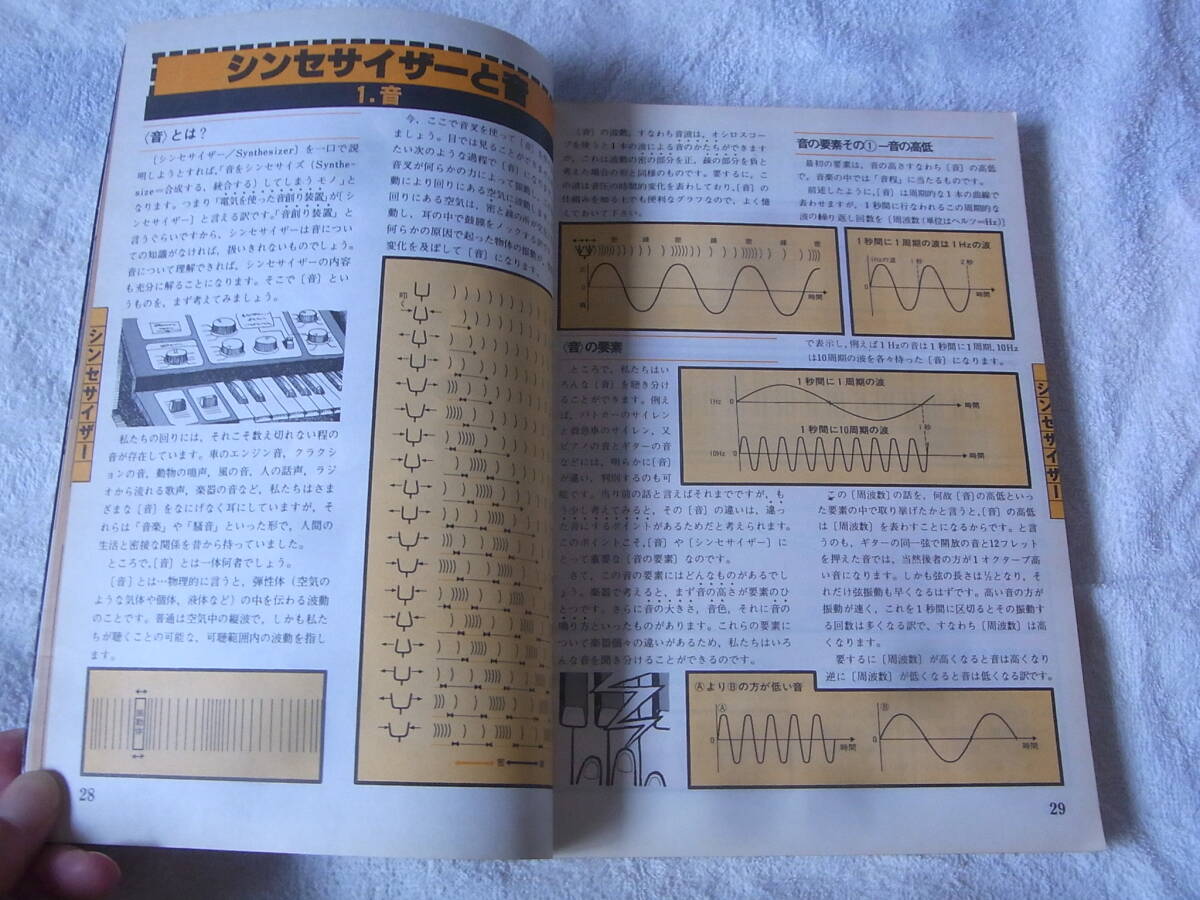 シンセサイザーと音
1.音
〈音〉とは?
［シンセサイザー/Synthesizer］を一口で説
明しようとすれば,「音をシンセサイズ (Synthe-
size=合成する、統合する) してしまう モノ」と
なります。つまり「電気を使った音創り装置」が［シ
ンセサイザー］と言える訳です。「音創り装置」と
言うぐらいですから、シンセサイザーは音につい
ての知識がなければ、扱いきれないものでしょう。
音について理解できれば、シンセサイザーの内容
も充分に解ることになります。そこで［音］とい
うものを、まず考えてみましょう。
私たちの回りには、それこそ数え切れない程の
音が存在しています。車のエンジン音、クラクシ
ョンの音、動物の鳴声、風の音、人の話声、ラジ
オから流れる歌声、楽器の音など、私たちはさま
ざまな［音］をなにげなく耳にしていますが、そ
れらは「音楽」や「騒音」といった形で、人間の
生活と密接な関係を昔から持っていました。
ところで、［音］とは一体何者でしょう。
［音］とは…物理的に言うと、弾性体 (空気の
ような気体や個体、液体など) の中を伝わる波動
のことです。普通は空気中の縦波で、しかも私た
ちが聴くことの可能な、可聴範囲内の波動を指し
ます。
28
今、ここで音叉を使って［音］を
ましょう。目では見ることができ
たい次のような過程で［音］にな
音叉が何らかの力によって振動し、
動により回りにある空気に波動し、
回りにある空気は、密と疎の所が
動し、耳の中で鼓膜をノックする
何らかの原因で起った物体の振動が、
変化を及ばして［音］になります。
叩く
密
シンセサイザー
［音］の波動、すなわち音波は、オシロスコー
プを使うと1本の波による音のかたちができます
が、これは波動の密の部分を正、疎の部分を負と
考えた場合の形と同様のものです。要するに、こ
の波は音圧の時間的変化を表わしており、［音］の
仕組みを知る上でも便利なグラフなので、よく憶
えておいて下さい。
密 疎 密 疎 密 疎 密
正
0
負
時間
〈音〉の要素
ところで、私たちはい
ろんな［音］を聴き分け
ることができます。例え
ば、パトカーのサイレン
と救急車のサイレン、又
ピアノの音とギターの音
などには、明らかに［音］
が違い、判別するのも可
能です。当り前の話と言えばそれまでですが、も
う少し考えてみると、その［音］の違いは、違っ
た音にするポイントがあるためだと考えられます。
このポイントこそ、［音］や［シンセサイザー］に
とって重要な［音の要素］なのです。
さて、この音の要素にはどんなものがあるでし
ょう。楽器で考えると、まず音の高さが要素のひ
とつです。さらに音の大きさ、音色、それに音の
鳴り方といったものがあります。これらの要素に
ついて楽器個々の違いがあるため、私たちはいろ
んな音を聞き分けることができるのです。
音の要素その①―音の高低
最初の要素は、音の高さすなわち［音］の高低
で、音楽の中では「音程」に当たるものです。
前述したように、［音］は周期的な1本の曲線で
表わせますが、1秒間に行なわれるこの周期的な
波の繰り返し回数を［周波数(単位はヘルツ=Hz)］
1秒間に1周期の波は1Hzの波
1Hzの波
1秒
2秒
0
時間
で表示し、例えば1Hzの音は1秒間に1周期、10Hz
は10周期の波を各々持った［音］になります。
1秒間に1周期の波
1Hz 0
時間
1秒
1秒間に10周期の波
10Hz 0
時間
この［周波数］の話を、何故［音］の高低といっ
た要素の中で取り挙げたかと言うと、［音］の高低
は［周波数］を表わすことになるからです。と言
うのも、ギターの同一弦で開放の音と12フレット
を押えた音では、当然後者の方が1オクターブ高
い音になります。しかも弦の長さは½となり、そ
れだけ弦振動も早くなるはずです。高い音の方が
振動が速く、これを1秒間に区切るとその振動す
る回数は多くなる訳で、すなわち［周波数］は高
くなります。
要するに［周波数］が高くなると音は高くなり
逆に［周波数］が低くなると音は低くなる訳です。
ⒶよりⒷの方が低い音
Ⓐ
0
時間
Ⓑ
0
時間
シンセサイザー
29